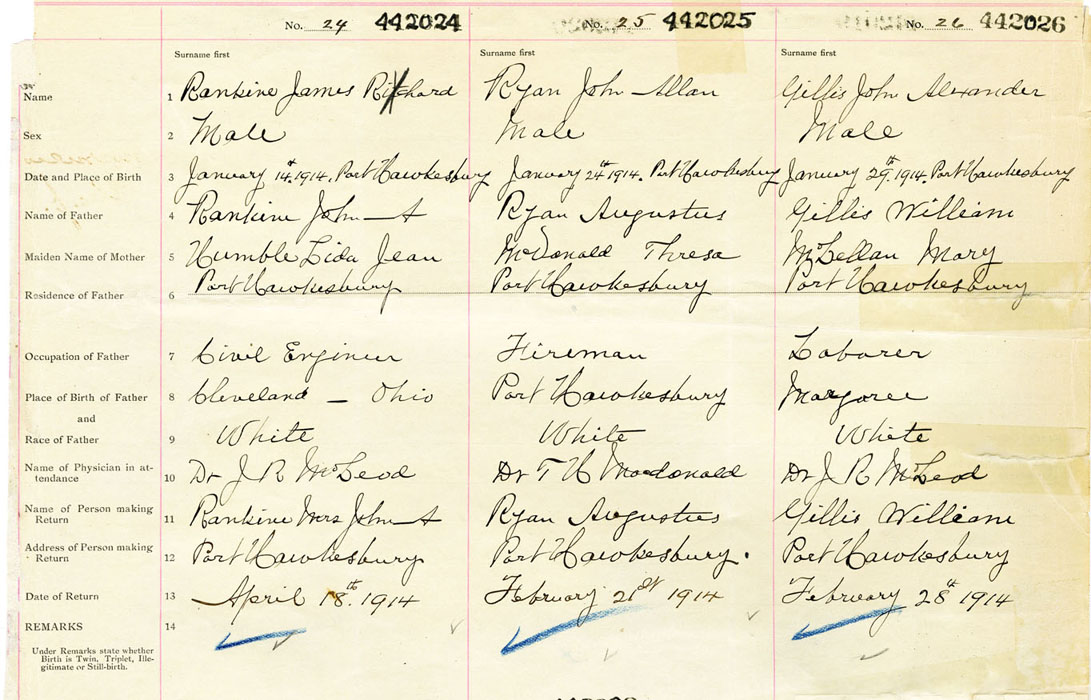 No. 24 442024 No. 25 442025 No. 26 442026
Surname first Surname first Surname first
Name 1 Rankine James Richard Ryan John Allan Gillis John Alexander
Sex 2 Male Male Male
Date and Place of Birth 3 January 14th. 1914. Port Hawkesbury January 24th 1914. Port Hawkesbury January 29th. 1914. Port Hawkesbury
Name of Father 4 Rankine John A Ryan Augustus Gillis William
Maiden Name of Mother 5 Humble Lida Jean McDonald Thresa McLellan Mary
Residence of Father 6 Port Hawkesbury Port Hawkesbury Port Hawkesbury
Occupation of Father 7 Civil Engineer Fireman Laborer
Place of Birth of Father 8 Cleveland – Ohio Port Hawkesbury Margaree
and
Race of Father 9 White White White
Name of Physician in at-
tendance 10 Dr J R McLeod Dr T H Macdonald Dr J R McLeod
Name of Person making
Return 11 Rankine Mrs John A Ryan Augustus Gillis William
Address of Person making
Return 12 Port Hawkesbury Port Hawkesbury. Port Hawkesbury
Date of Return 13 April 18th 1914 February 21st 1914 February 28th 1914
REMARKS 14
Under Remarks state whether
Birth is Twin, Triplet, Ille-
gitimate or Still-birth.